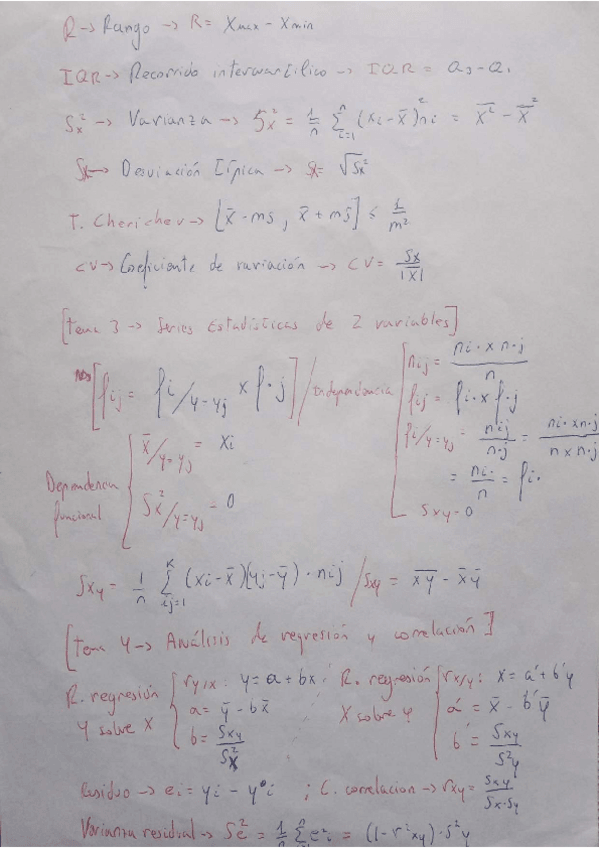 R → Rango → R = Xmax - Xmin
IQR → Recorrido intercuartílico → IQR = Q₃ - Q₁
Sx² → Varianza → Sx² = 1/n Σ(i=1, n) (xi - x̄)² ni = x̄² - x̄²
Sx → Desviación típica → Sx = √Sx²
T. Cherichev → [x̄ - ms, x̄ + ms] ≤ 1/m²
CV → Coeficiente de variación → CV = Sx/|x̄|
[Tema 3 → Series Estadísticas de 2 variables]
[fij = fi/y=yj x f·j] / Independencia
nij = ni· x n·j / n
fij = fi· x f·j
fi/y=yj = nij/n·j = ni· x n·j / n x n·j
= ni·/n = fi·
Sxy = 0
Dependencia funcional
x̄/y=yj = xi
Sx²/y=yj = 0
Sxy = 1/n Σ(ij=1, k) (xi - x̄)(yj - ȳ) · nij / Sxy = xy - x̄ȳ
[Tema 4 → Análisis de regresión y correlación]
R. regresión Y sobre X
ry/x: y = a + bx
a = ȳ - bx̄
b = Sxy/Sx²
R. regresión X sobre Y
rx/y: x = a' + b'y
a' = x̄ - b'ȳ
b' = Sxy/S²y
Residuo → ei = yi - y*i ; C. correlacion → rxy = Sxy/Sx·Sy
Varianza residual → Se² = 1/n Σ e²i = (1 - r²xy) · S²y